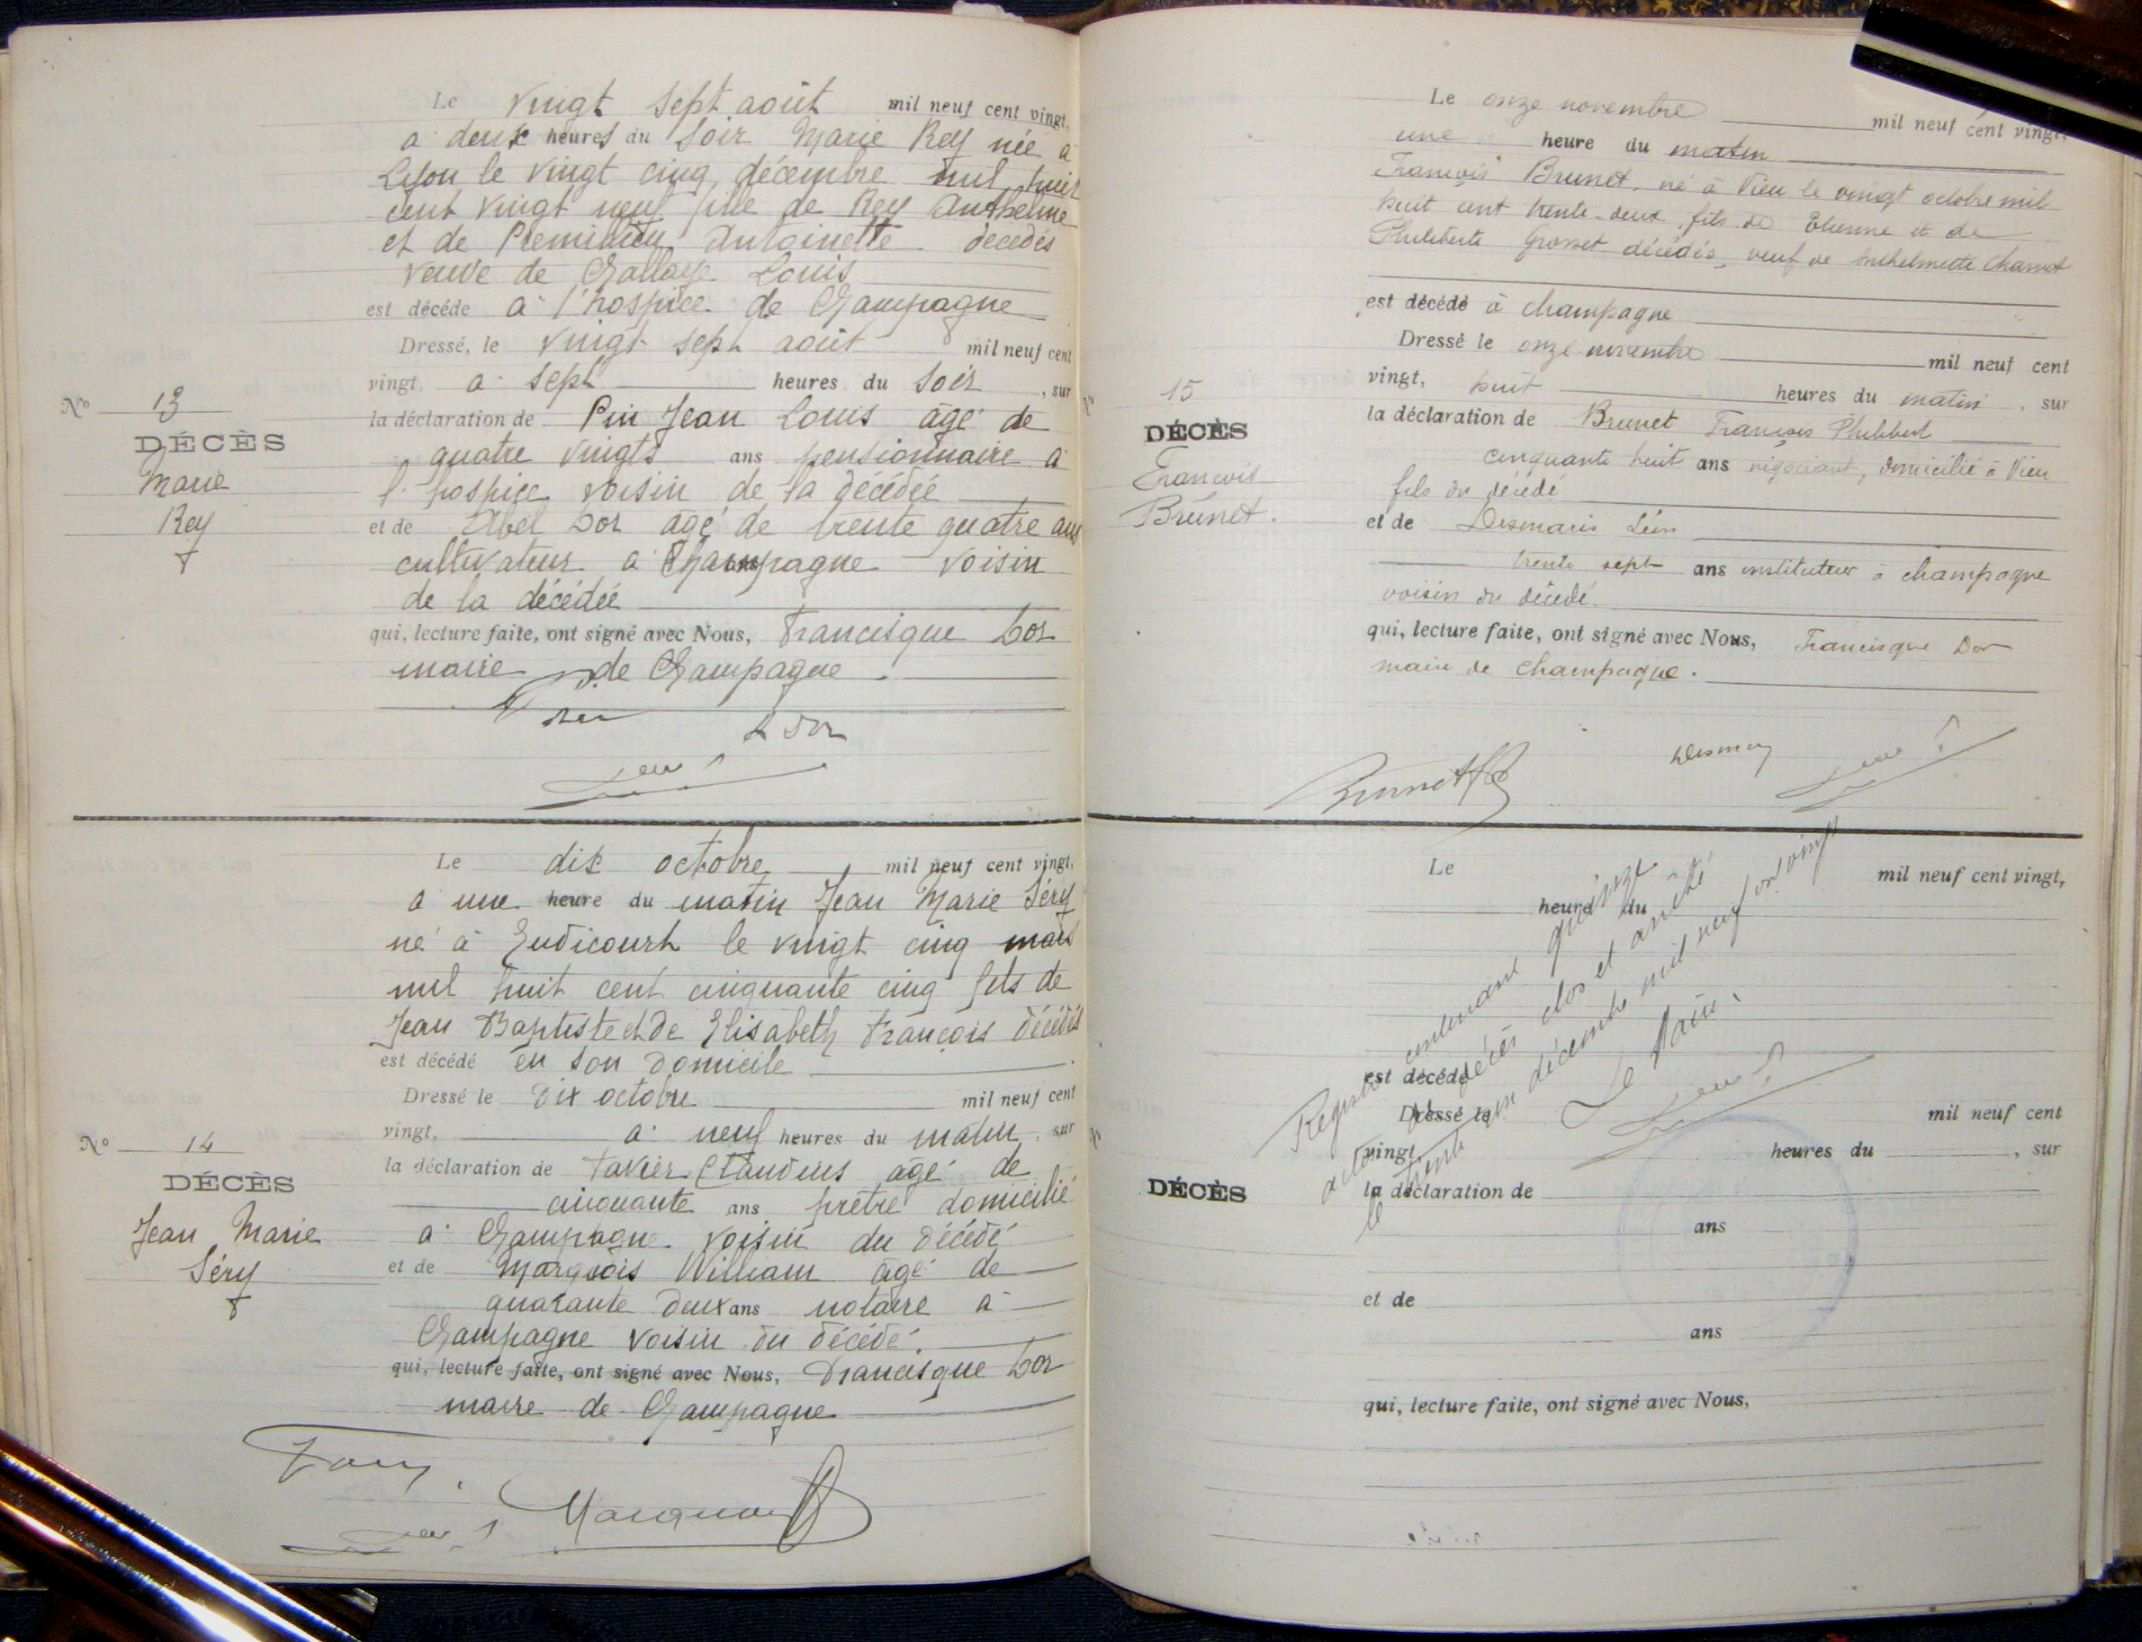 Le vingt sept août mil neuf cent vingt,
a deux heures du soir Marie Rey née a
Lyon le vingt cinq décembre mil huit
cent vingt neuf fille de Rey Anthelme
et de Antoinette décédés
veuve de Louis
est décédé a l'hospice de Champagne
Dressé, le vingt sept août mil neuf cent
vingt, a sept heures du soir, sur
la déclaration de Pin Jean Louis âgé de
quatre vingts ans pensionnaire a
l'hospice voisin de la décédée
et de Abel Dor âgé de trente quatre ans
cultivateur a Champagne voisin
de la décédée
qui, lecture faite, ont signé avec Nous, Francisque Dor
maire de Champagne
Nº 13
DÉCÈS
Marie
Rey
Le dix octobre mil neuf cent vingt,
a une heure du matin Jean Marie Séry
né à Eudicourt le vingt cinq mars
mil huit cent cinquante cinq fils de
Jean Baptiste et de Elisabeth François décédés
est décédé en son domicile
Dressé le dix octobre mil neuf cent
vingt, a neuf heures du matin, sur
la déclaration de Tavier Claudius âgé de
cinquante ans prêtre domicilié
a Champagne voisin du décédé
et de Marquois William âgé de
quarante deux ans notaire a
Champagne voisin du décédé.
qui, lecture faite, ont signé avec Nous, Francisque Dor
maire de Champagne
Nº 14
DÉCÈS
Jean Marie
Séry
Le onze novembre mil neuf cent vingt,
une heure du matin
François Brunet, né à Vieu le vingt octobre mil
huit cent trente-deux, fils de Etienne et de
Philiberte Grosset décédés, veuf de Anthelmette Charvet
est décédé à Champagne
Dressé le onze novembre mil neuf cent
vingt, huit heures du matin, sur
la déclaration de Brunet François Philibert
cinquante huit ans négociant, domicilié à Vieu
fils du décédé
et de Desmaris Léon
trente sept ans instituteur à Champagne
voisin du décédé.
qui, lecture faite, ont signé avec Nous, Francisque Dor
maire de Champagne.
15
DÉCÈS
François
Brunet.
Brunet
Le mil neuf cent vingt,
heure du
est décédé
Dressé le mil neuf cent
vingt, heures du , sur
la déclaration de
ans
et de
ans
qui, lecture faite, ont signé avec Nous,
DÉCÈS
Registre contenant quinze
actes de décès clos et arrêté
le trente un décembre mil neuf cent vingt
Le Maire